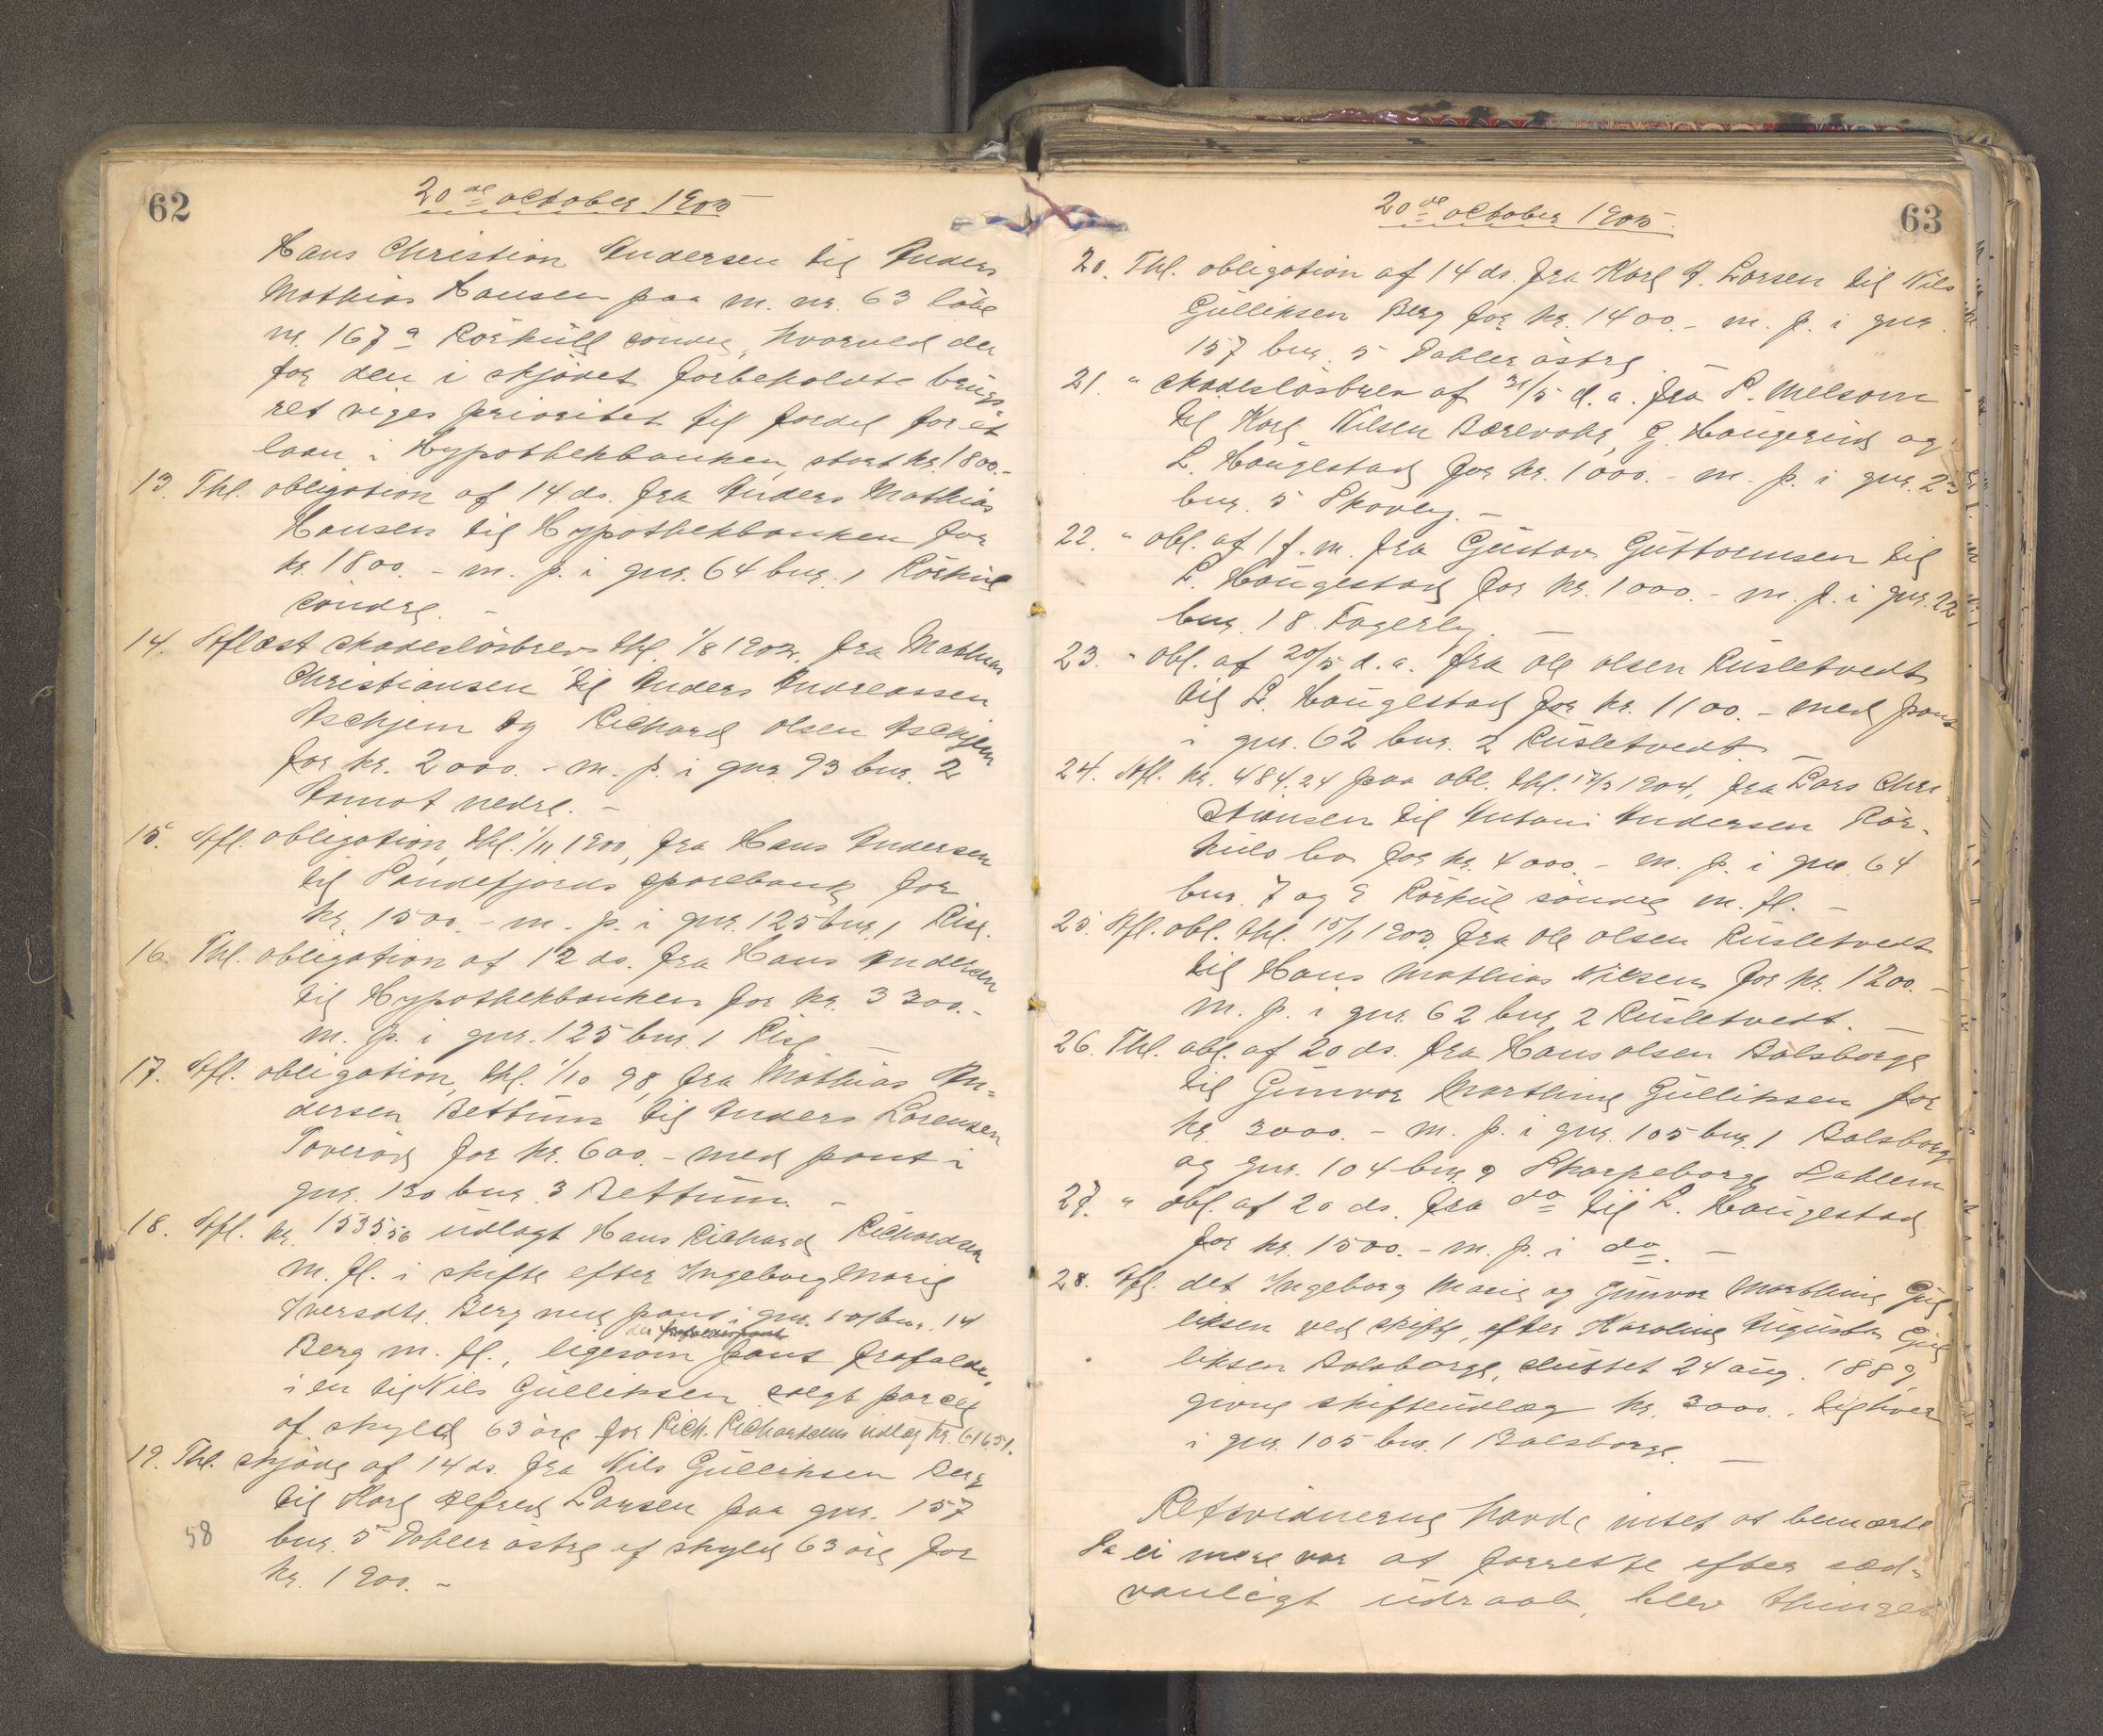 62
20de october 1905
Hans Christian Andersen til Anders
Mathias Hansen paa m. nr. 63 löbe
nr. 167a Rörkull söndre, hvorved der
for den i skjödet forbeholdte brugs-
ret viges prioritet til fordel for et
laan i Hypothekbanken, stort kr. 1800.-
13. Thl. obligation af 14 ds. fra Anders Mathias
Hansen til Hypothekbanken for
kr. 1800.- m. p. i gnr. 64 bnr. 1 Rörkul
söndre. -
14. Aflæst skadeslösbrev thl. 1/8 1902, fra Mathias
Christiansen til Anders Andreassen
Askjem og Richard Olsen Askjem
for kr. 2000.- m. p. i gnr. 93 bnr. 2
Aamot nedre. -
15. Afl. obligation, thl. 1/11 1900, fra Hans Andersen
til Sandefjords sparebank for
kr. 1500.- m. p. i gnr. 125 bnr. 1 Rise.
16. Thl. obligation af 12 ds. fra Hans Andersen
til Hypothekbanken for kr. 3300.-
m. p. i gnr. 125 bnr. 1 Rise -
17. Afl. obligation, thl. 1/10 98, fra Mathias An-
dersen Bettum til Anders Lorensen
Toveröd for kr. 600.- med pant i
gnr. 130 bnr. 3 Bettum. -
18. Afl. kr. 1535.56 udlagt Hans Richard Richardsen
m. fl. i skifte efter Ingeborg Marie
Iversdtr. Berg med pant i gnr. 101 bnr. 14
Berg m. fl., ligesom pant frafaldes
i en til Nils Gulliksen solgt parcel
af skyld 63 öre for Rich. Richardsens udlæg kr. 616.51.
19. Thl. skjöde af 14 ds. fra Nils Gulliksen Berg
til Karl Alfred Larsen paa gnr. 157
58
bnr. 5 Dahler östre af skyld 63 öre for
kr. 1900. -
63
20de october 1905.
20. Thl. obligation af 14 ds. fra Karl A. Larsen til Nils
Gulliksen Berg for kr. 1400.- m. p. i gnr.
157 bnr. 5 Dahler östre -
21. " skadeslösbrev af 31/5 d. a. fra P. Melsom
til Karl Nilsen Bærevahr, G. Haugerud og
L. Haugestad for kr. 1000.- m. p. i gnr. 23
bnr. 5 Skovly. -
22. " obl. af 1 f. m. fra Gustav Guttormsen til
L. Haugestad for kr. 1000.- m. p. i gnr. 22
bnr. 18 Fagerly. -
23. " obl. af 20/5 d. a. fra Ole Olsen Rusletvedt
til L. Haugestad for kr. 1100.- med pant
i gnr. 62 bnr. 2 Rusletvedt. -
24. Afl. kr. 484.24 paa obl. thl. 17/3 1904, fra Lars Chri-
stiansen til Antoni Andersen Rör-
kuls bo for kr. 4000.- m. p. i gnr. 64
bnr. 7 og 9 Rörkul söndre m. fl. -
25. Afl. obl. thl. 15/1 1903 fra Ole Olsen Rusletvedt
til Hans Mathias Nilsen for kr. 1200.-
m. p. i gnr. 62 bnr. 2 Rusletvedt. -
26. Thl. obl. af 20 ds. fra Hans Olsen Bolsborge
til Gunvor Marthine Gulliksen for
kr. 3000.- m. p. i gnr. 105 bnr. 1 Bolsborge
og gnr. 104 bnr. 9 Skorpeborge Dahlem
27. " obl. af 20 ds. fra do til L. Haugestad
for kr. 1500.- m. p. i do. -
28. Afl. det Ingeborg Marie og Gunvor Marthine Gul-
liksen ved skifte efter Karoline Augusta Gul-
liksen Bolsborge, sluttet 24 aug. 1889,
givne skifteudlæg kr. 3000. til hver
i gnr. 105 bnr. 1 Bolsborge. -
Retsvidnerne havde intet at bemærke
Da ei mere var at forrette efter sæd-
vanligt udraab, blev thinget